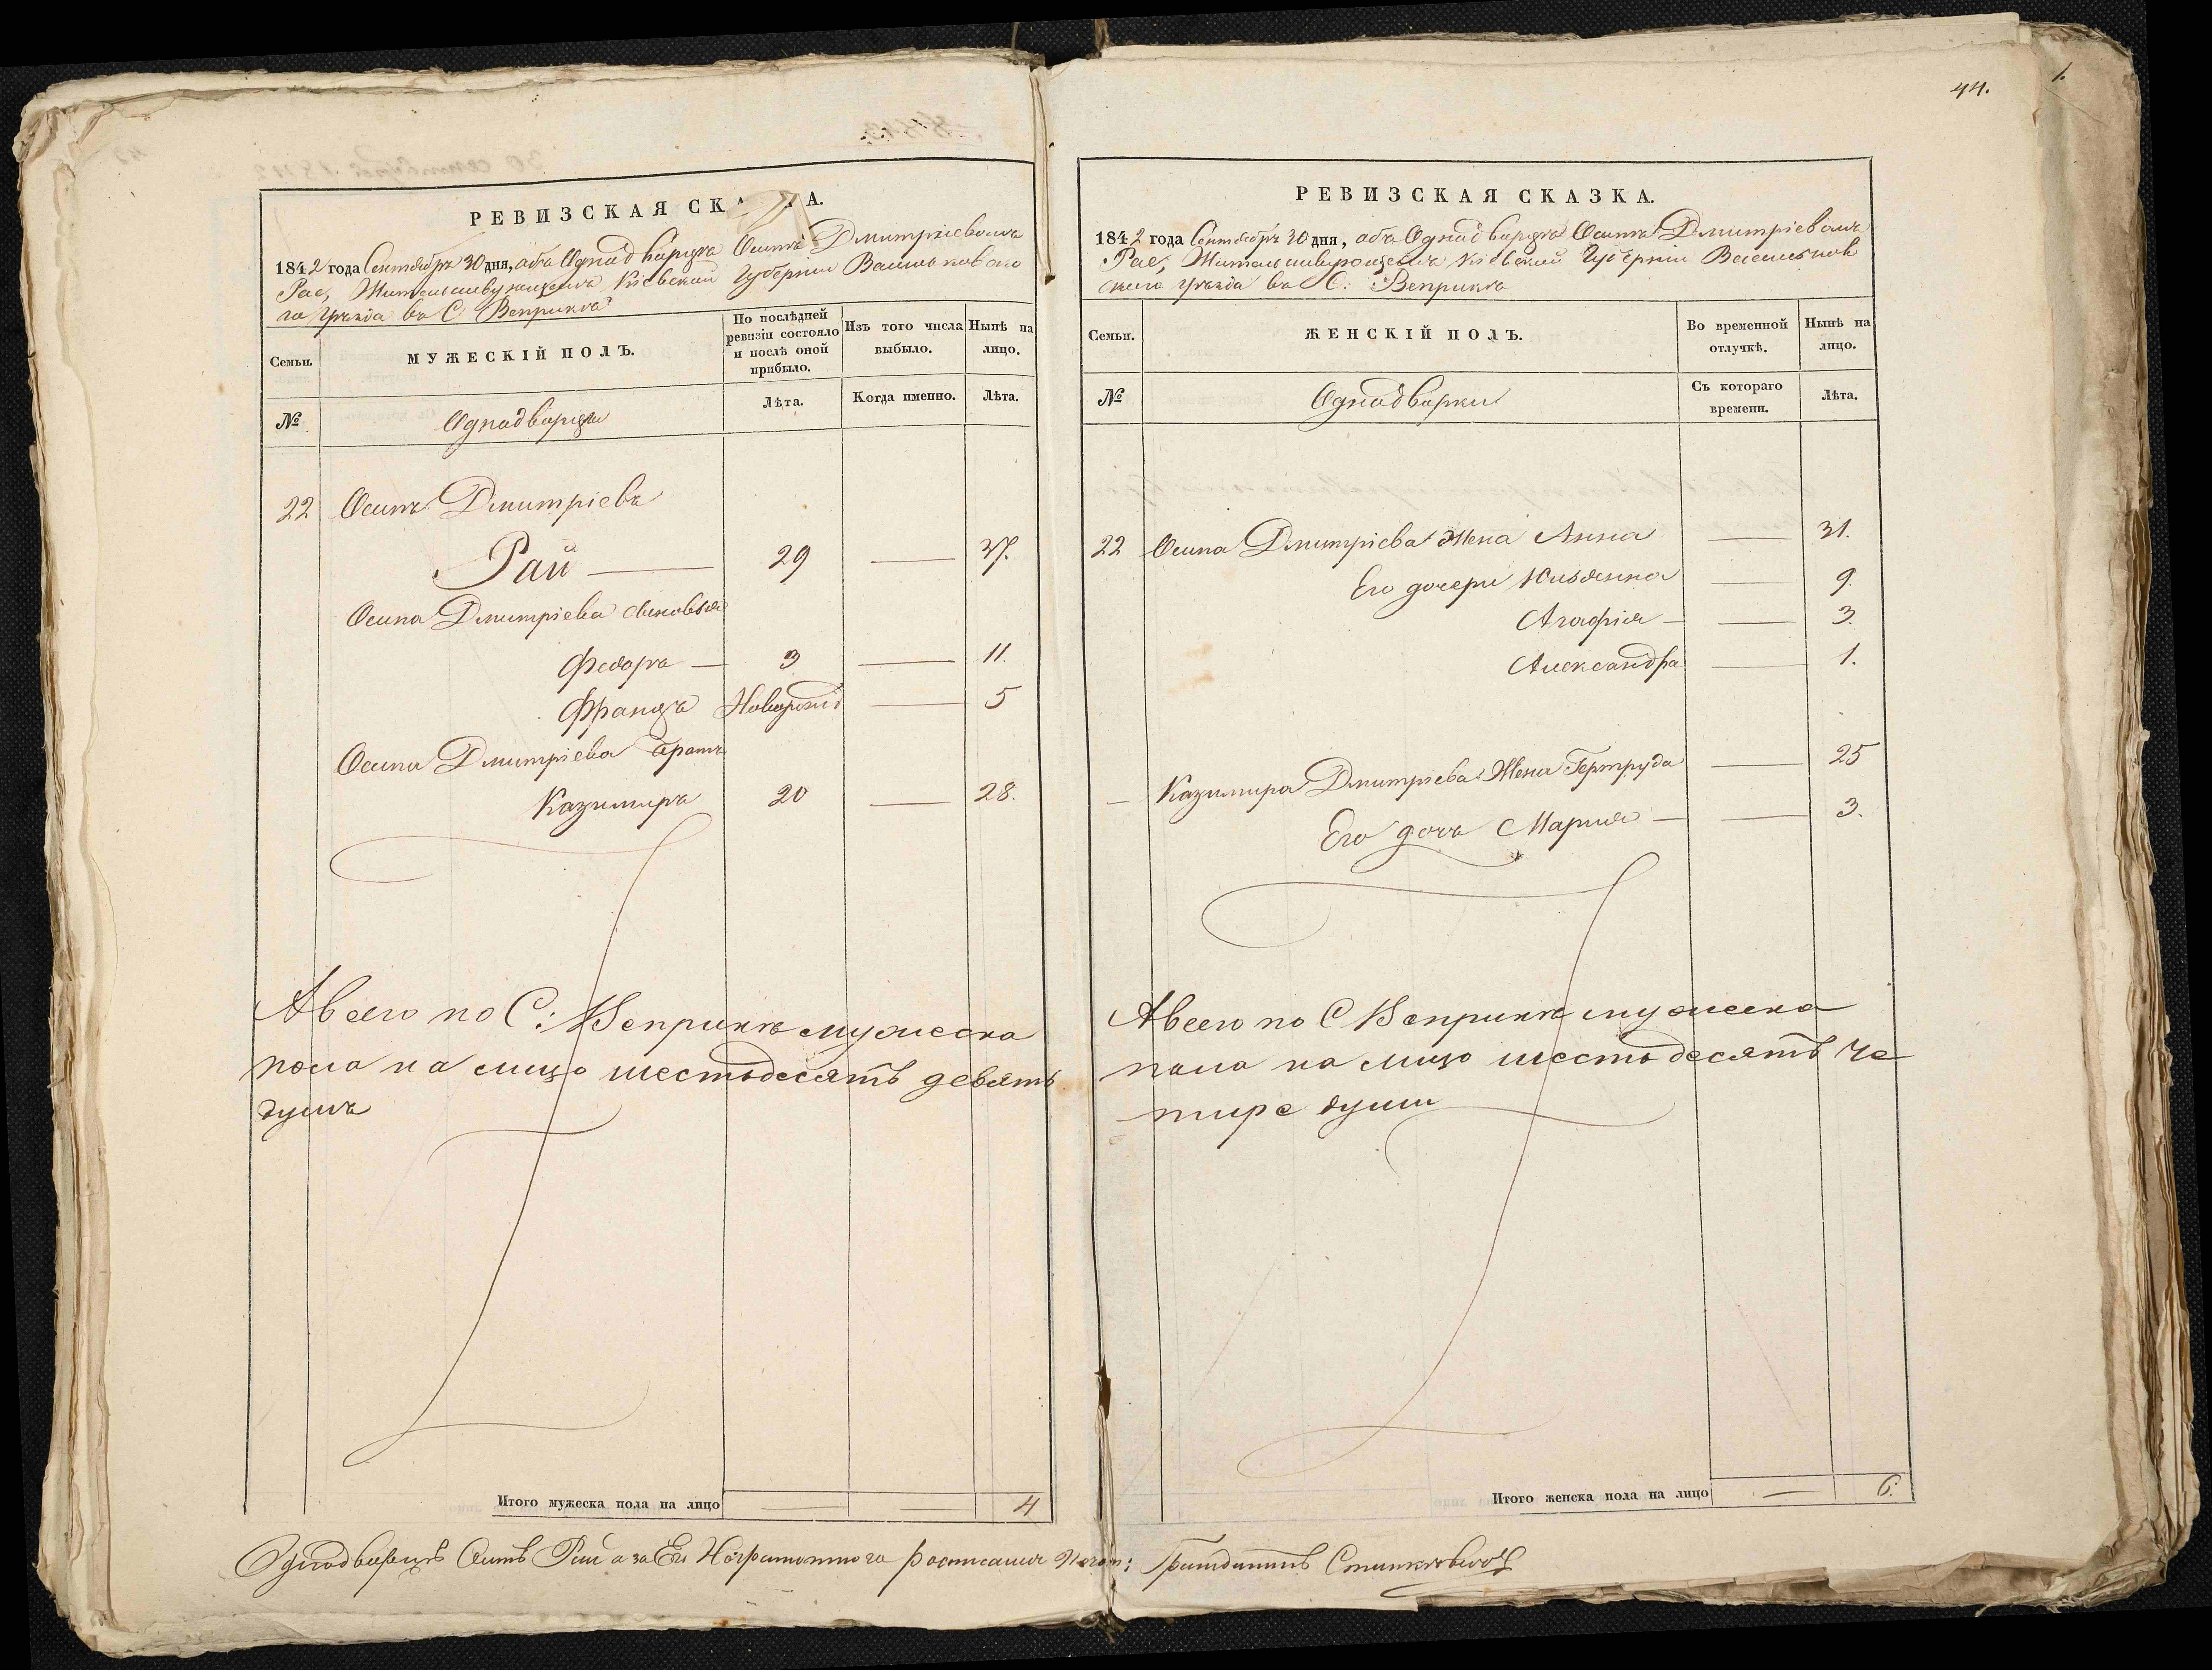 44.
1.
РЕВИЗСКАЯ СКА А.
1842 года Сентября 30 дня, объ Однодворцѣ Осипѣ Дмитріевомъ
Рае, Кіевской Губерніи Васильковско
го уѣзда въ С Веприкѣ
Семьи.
МУЖЕСКІЙ ПОЛЪ.
По послѣдней ревизіи состояло и послѣ оной прибыло.
Изъ того числа выбыло.
Нынѣ на лицо.
№
Однодворцы
Лѣта.
Когда именно.
Лѣта.
22 Осипъ Дмитріевъ
Рай — 29 — 37.
Осипа Дмитріева сыновья
Федоръ — 3 — 11.
Францъ Новорожд — 5
Осипа Дмитріева братъ
Казимиръ 20 — 28.
А всего по С: Веприкѣ мужеска
пола на лицо шестьдесятъ девять
душъ
Итого мужеска пола на лицо — — 4
РЕВИЗСКАЯ СКАЗКА.
1842 года Сентября 30 дня, объ Однодворцѣ Осипѣ Дмитріевомъ
Рае, Кіевской Губерніи Васильков
скаго уѣзда въ С: Веприкѣ
Семьи.
ЖЕНСКІЙ ПОЛЪ.
Во временной отлучкѣ.
Нынѣ на лицо.
№
Однодворки
Съ котораго времени.
Лѣта.
22 Осипа Дмитріева Жена Анна — 31.
Его дочери Юльянна — 9.
Агафія — — 3.
Александра — 1.
— Казимира Дмитріева Жена Гертруда — 25
Его дочь Марія — — 3.
А всего по С Веприкѣ мужеска
пола на лицо шестьдесятъ че
тыре души
Итого женска пола на лицо — 6.
Однодворецъ Осипъ Рай а за Его Неграмотнаго росписался